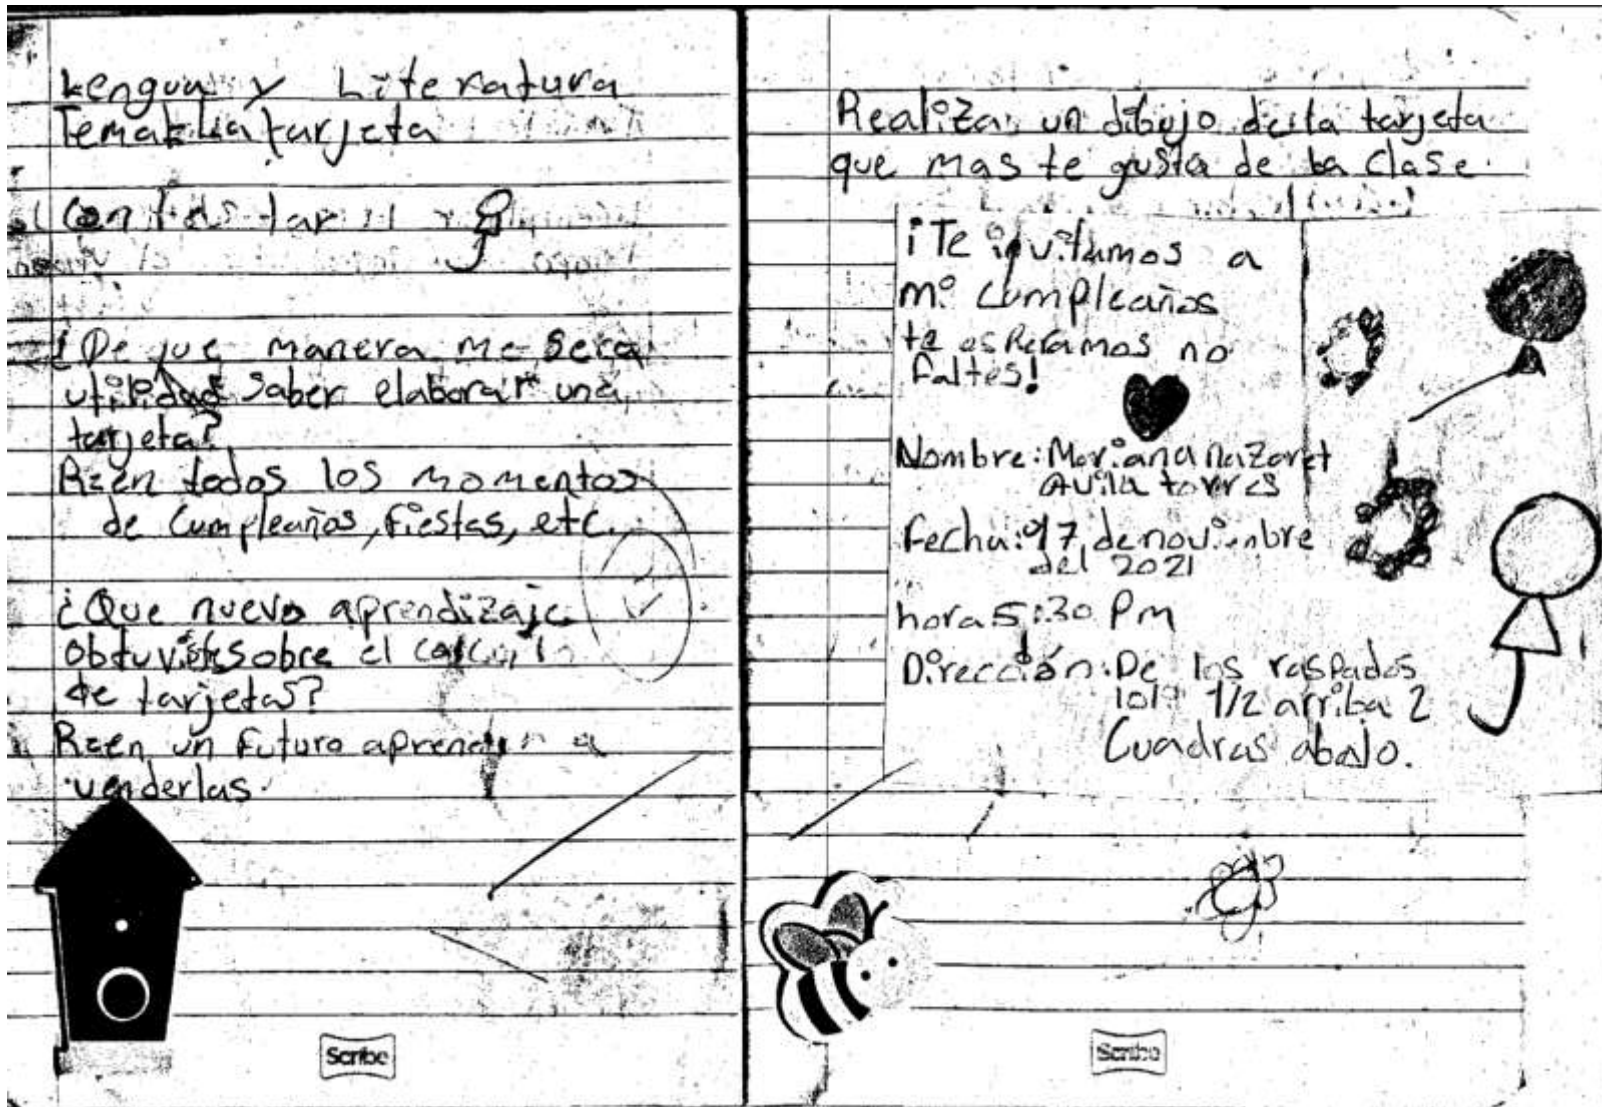 Lengua y Literatura
Tema: La tarjeta
¿De que manera me sera
utilidad saber elaborar una
tarjeta?
R= en todos los momentos
de cumpleaños, fiestas, etc.
¿Que nuevo aprendizaje
obtuviste sobre el
de tarjetas?
R= en un futuro aprender a
venderlas.
Scribe
Realiza un dibujo de la tarjeta
que mas te gusta de la clase.
¡Te invitamos a
mi cumpleaños
te esperamos no
faltes!
Nombre: Mariana nazaret
avila torres
Fecha: 17 de noviembre
del 2021
hora 5:30 Pm
Dirección: De los raspados
1/2 arriba 2
Cuadras abajo.
Scribe